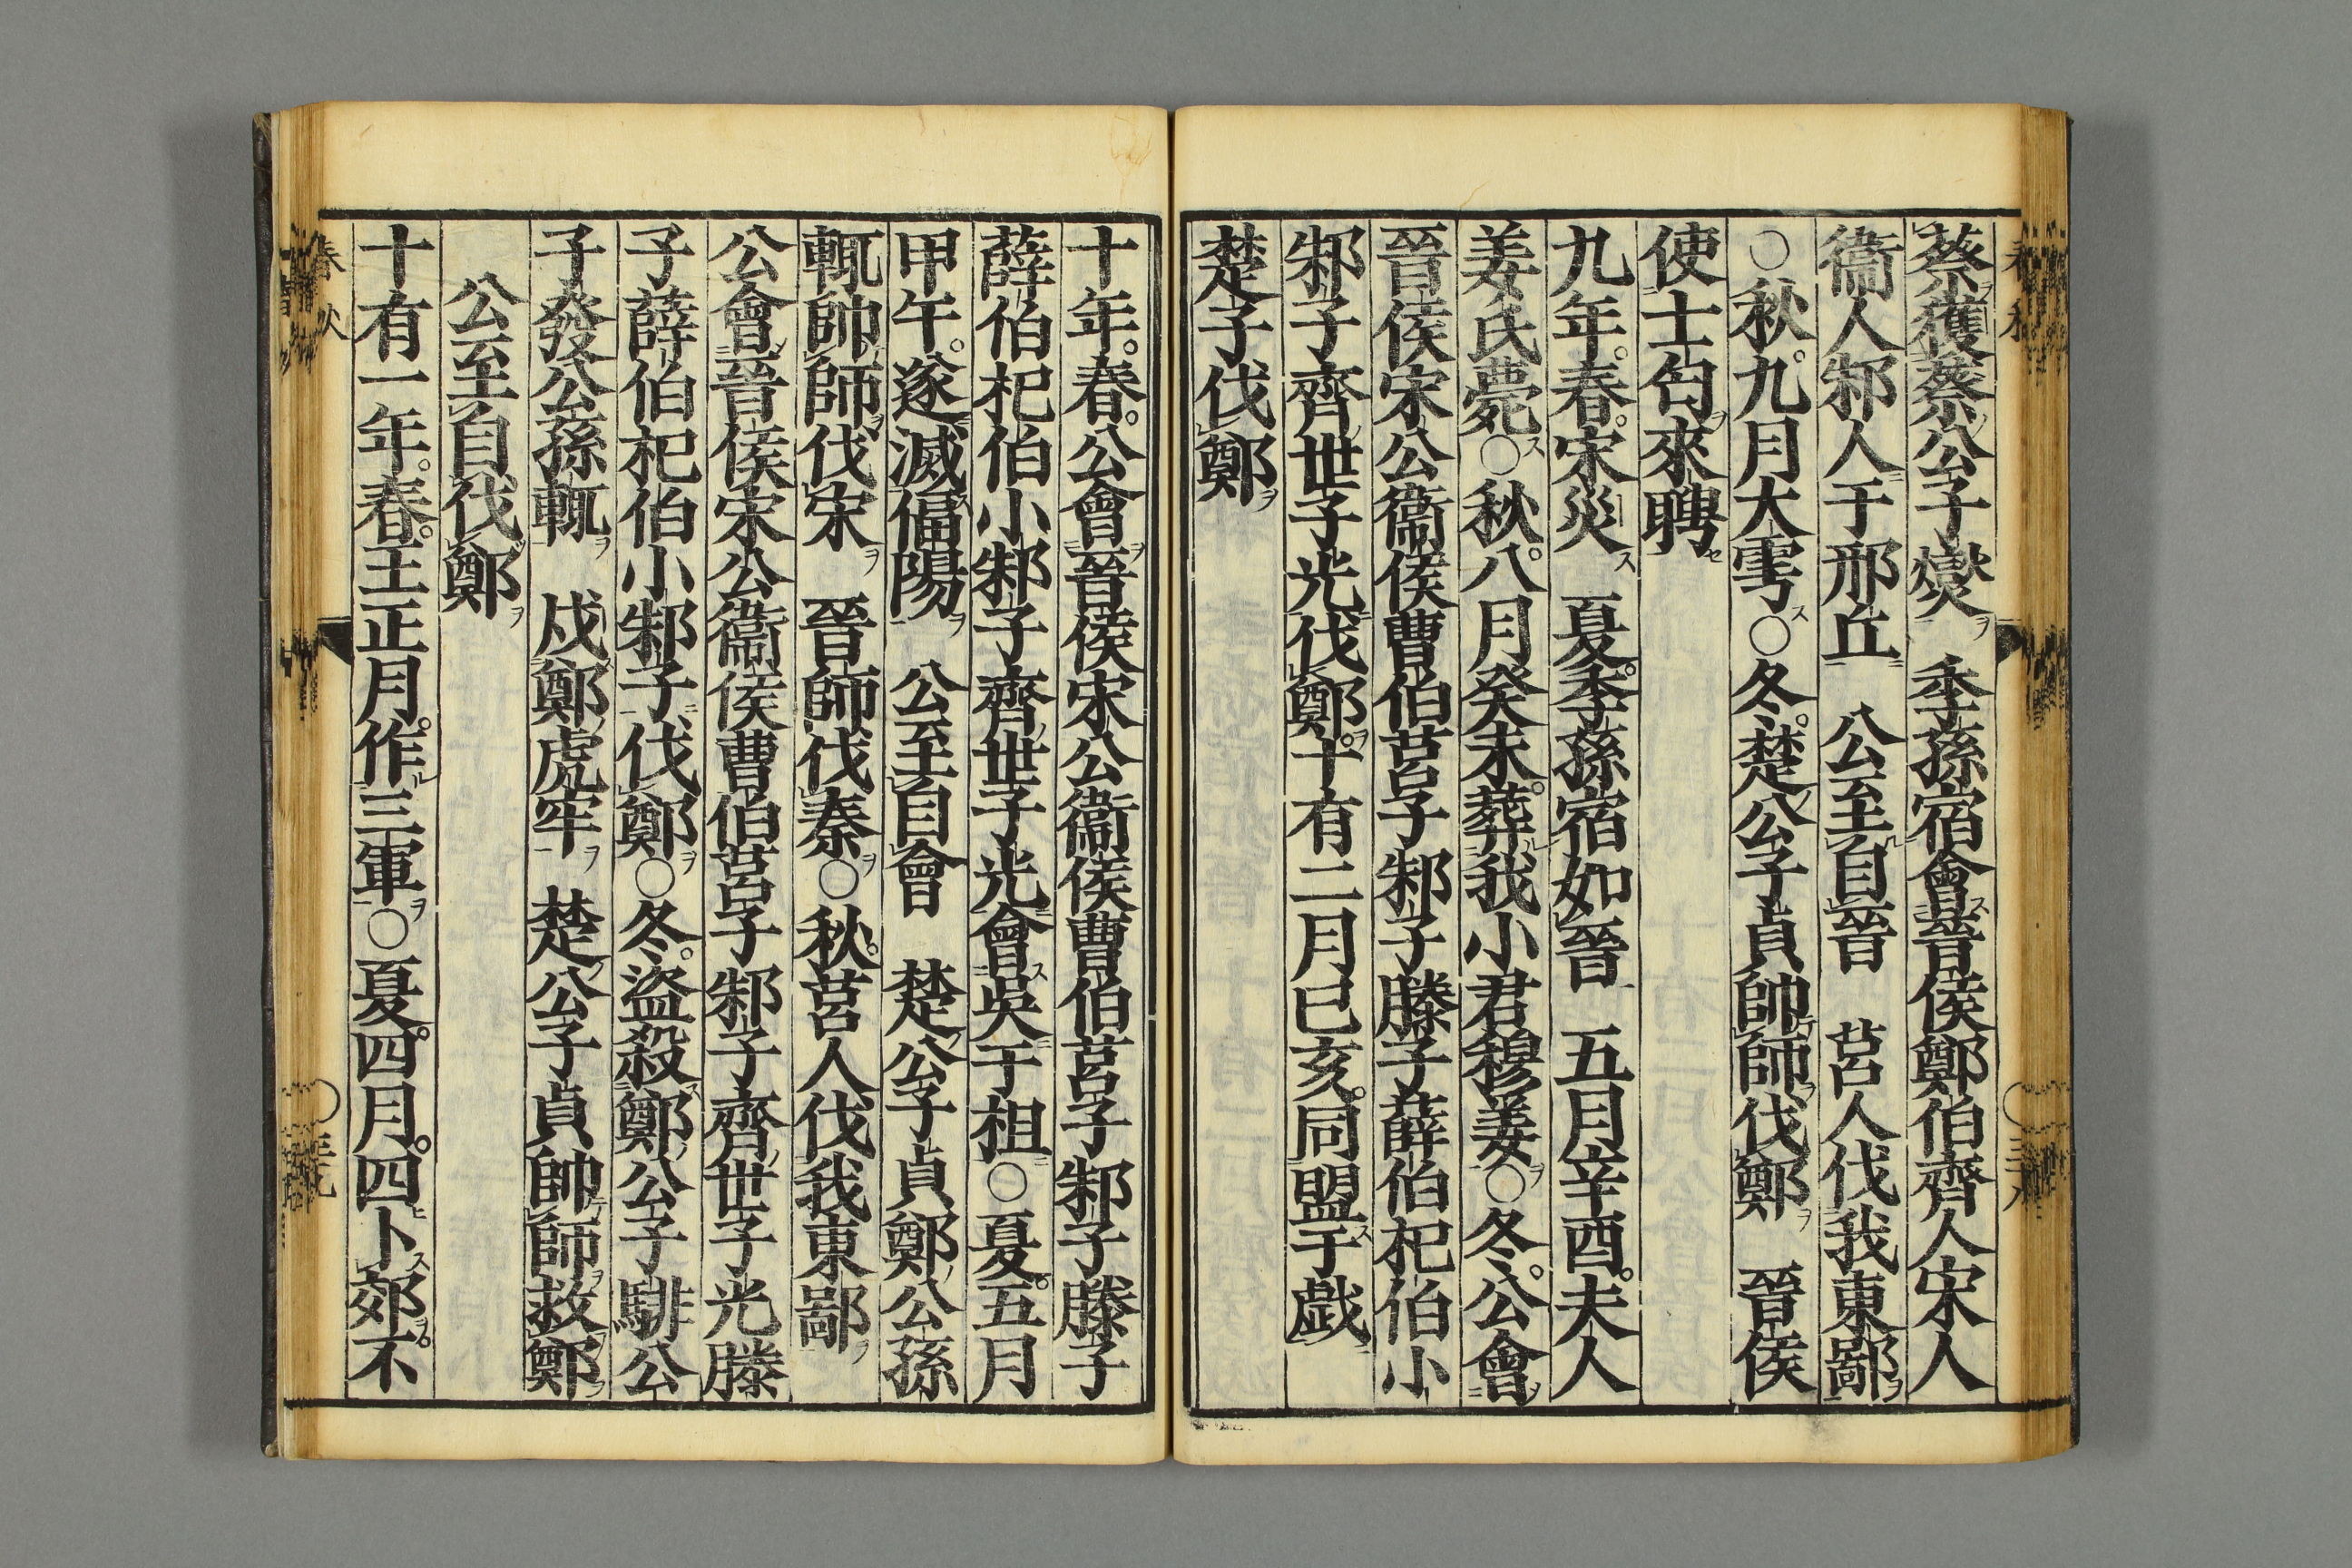 蔡獲蔡公子燮　季孫宿會晉侯鄭伯齊人宋人
衞人邾人于邢丘　公至自晉　莒人伐我東鄙
○秋九月大雩○冬楚公子貞帥師伐鄭　晉侯
使士匄來聘
九年春宋災　夏季孫宿如晉　五月辛酉夫人
姜氏薨○秋八月癸未葬我小君穆姜○冬公會
晉侯宋公衞侯曹伯莒子邾子滕子薛伯杞伯小
邾子齊世子光伐鄭十有二月已亥同盟于戲
楚子伐鄭
十年春公會晉侯宋公衞侯曹伯莒子邾子滕子
薛伯杞伯小邾子齊世子光會吳于柤○夏五月
甲午遂滅偪陽　公至自會　楚公子貞鄭公孫
輒帥師伐宋　晉師伐秦○秋莒人伐我東鄙
公會晉侯宋公衞侯曹伯莒子邾子齊世子光滕
子薛伯杞伯小邾子伐鄭○冬盜殺鄭公子騑公
子發公孫輒　戍鄭虎牢　楚公子貞帥師救鄭
公至自伐鄭
十有一年春王正月作三軍○夏四月四卜郊不
春秋